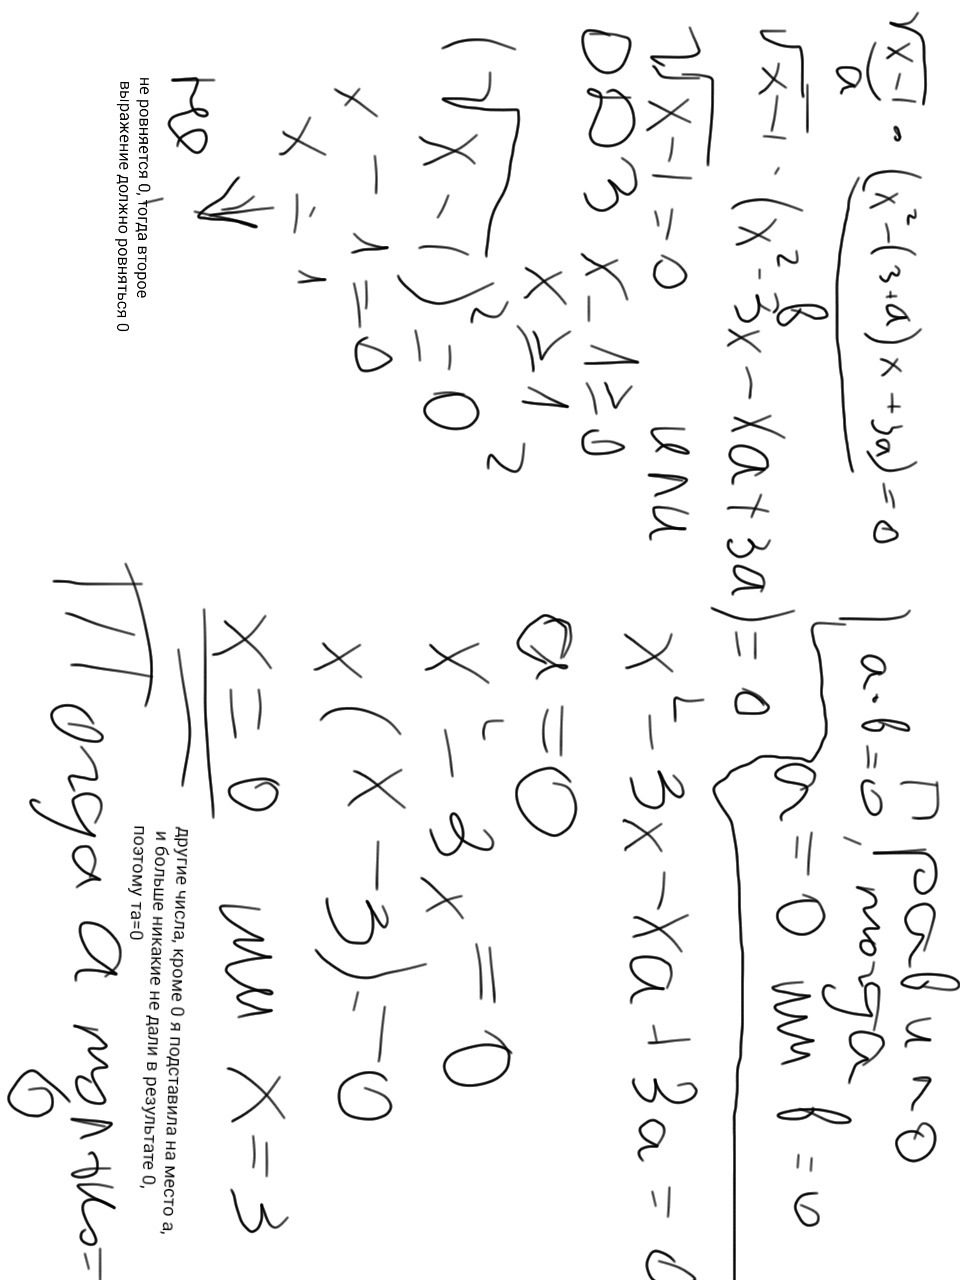 √x-1 · (x²-(3+a)x+3a)=0
a
в
√x-1 · (x²-3x-xa+3a)=0
√x-1=0 или
ОДЗ x-1≥0
x≥1
(√x-1)²=0²
x-1=0
x=1
но
не ровняется 0, тогда второе
выражение должно ровняться 0
Правило
a·в=0, тогда
a=0 или в=0
x²-3x-xa+3a=0
a=0
x²-3x=0
x(x-3)=0
x=0 или x=3
другие числа, кроме 0 я подставила на место а,
и больше никакие не дали в результате 0,
поэтому та=0
Тогда а только=
0